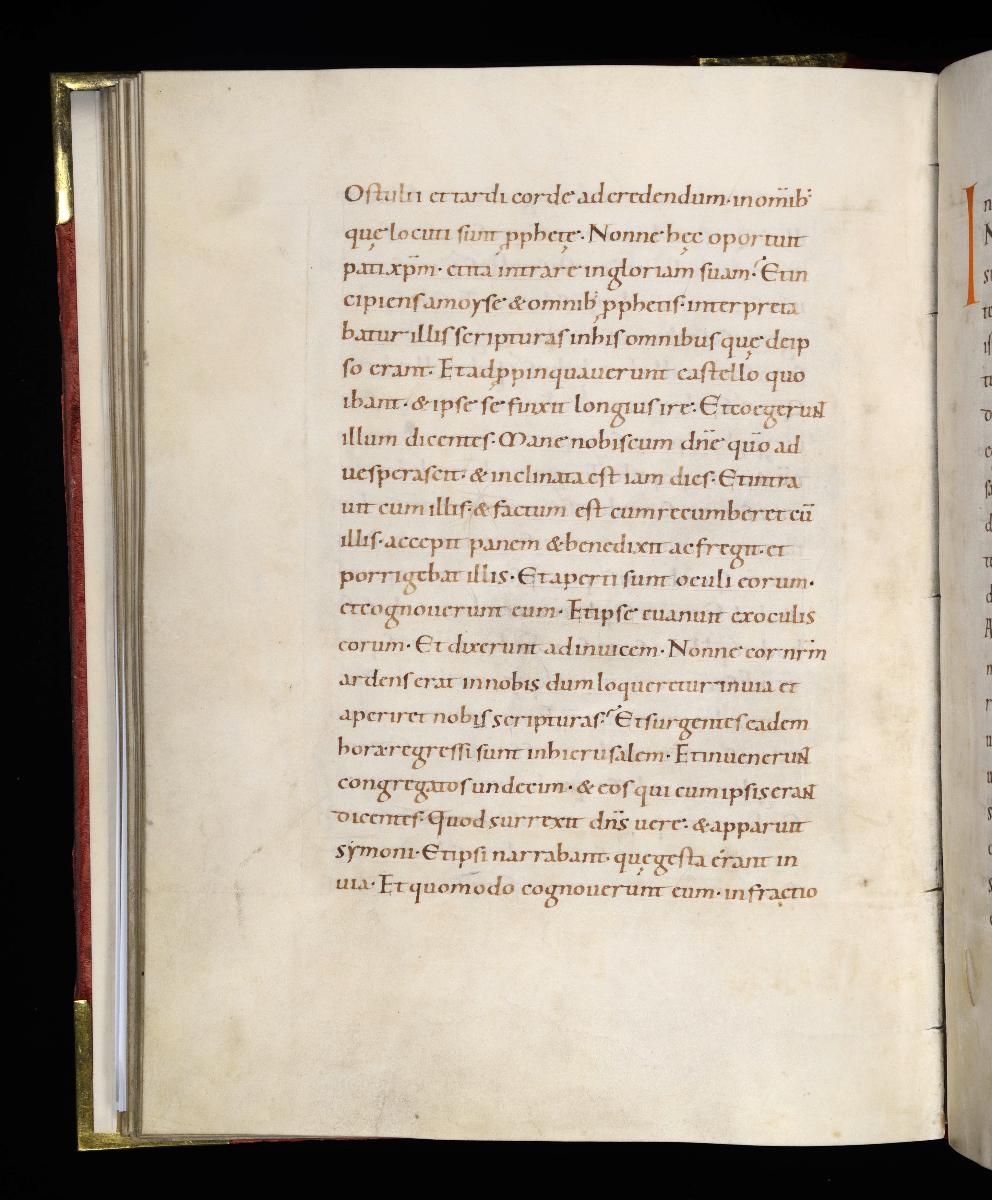 O stulti et tardi corde ad credendum· in om̅ib:
quę locuti sunt ꝓphetę· Nonne hęc oportuit
pati xp̅m· et ita intrare in gloriam suam? Et in
cipiens a moyse & omnib; ꝓphetis· interpreta
batur illis scripturas in his omnibus quę de ip
so erant· Et adꝓpinquauerunt castello quo
ibant· & ipse se finxit longius ire· Et coegerunt
illum dicentes· Mane nobiscum dn̅e quo̅ ad
uesperascit· & inclinata est iam dies· Et intra
uit cum illis· & factum est cum recumberet cu̅
illis· accepit panem & benedixit ac fregit· et
porrigebat illis· Et aperti sunt oculi eorum·
et cognouerunt eum· Et ipse euanuit ex oculis
eorum· Et dixerunt ad inuicem· Nonne cor nr̅m
ardens erat in nobis dum loqueretur in uia et
aperiret nobis scripturas? Et surgentes eadem
hora regressi sunt in hierusalem· Et inuenerunt
congregatos undecim· & eos qui cum ipsis erant
dicentes· Quod surrexit dn̅s uere· & apparuit
symoni· Et ipsi narrabant· quę gesta erant in
uia· Et quomodo cognouerunt eum· in fractio